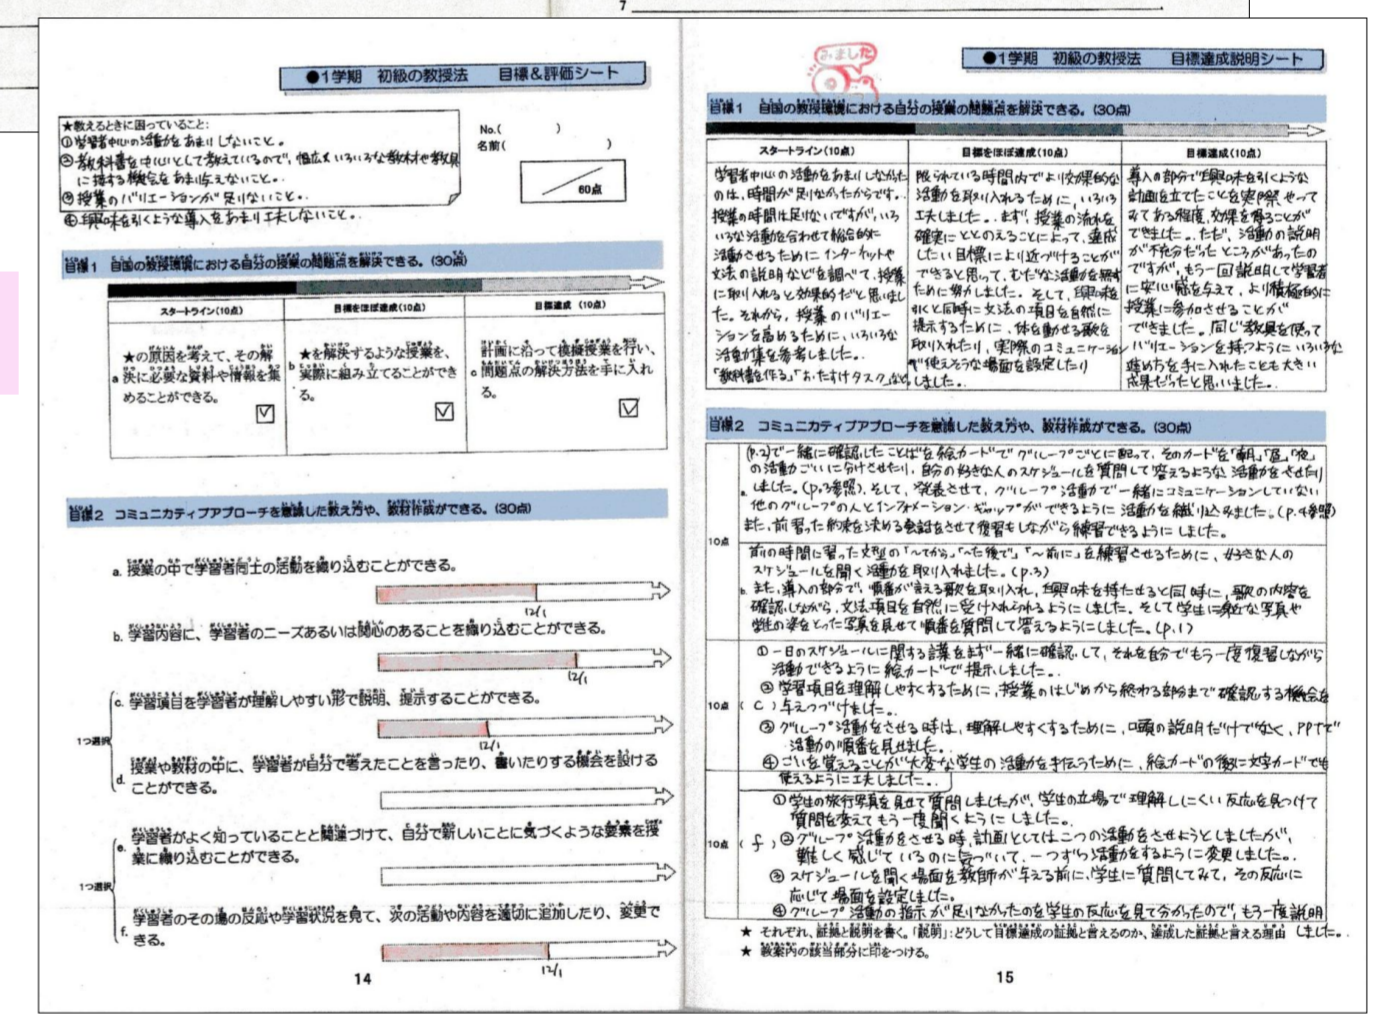 7
●1学期　初級の教授法　　目標&評価シート
★教えるときに困っていること：
①学習者中心の活動をあまりしないこと。
②教科書を中心として教えているので、幅広くいろいろな教材や教具
に接する機会をあまり与えないこと。
③授業のバリエーションが足りないこと。
④興味を引くような導入をあまり工夫しないこと。
No.(　　　　)
名前(　　　　　　　)
60点
目標1　自国の教授環境における自分の授業の問題点を解決できる。(30点)
スタートライン(10点)
目標をほぼ達成(10点)
目標達成 (10点)
a ★の原因を考えて、その解
決に必要な資料や情報を集
めることができる。
b ★を解決するような授業を、
実際に組み立てることができ
る。
c 計画に沿って模擬授業を行い、
問題点の解決方法を手に入れ
る。
目標2　コミュニカティブアプローチを意識した教え方や、教材作成ができる。(30点)
a. 授業の中で学習者同士の活動を織り込むことができる。
12/1
b. 学習内容に、学習者のニーズあるいは関心のあることを織り込むことができる。
12/1
1つ選択
c. 学習項目を学習者が理解しやすい形で説明、提示することができる。
12/1
d. 授業や教材の中に、学習者が自分で考えたことを言ったり、書いたりする機会を設ける
ことができる。
1つ選択
e. 学習者がよく知っていることと関連づけて、自分で新しいことに気づくような要素を授
業に織り込むことができる。
f. 学習者のその場の反応や学習状況を見て、次の活動や内容を適切に追加したり、変更で
きる。
12/1
14
みました
●1学期　初級の教授法　　目標達成説明シート
目標1　自国の教授環境における自分の授業の問題点を解決できる。(30点)
スタートライン(10点)
学習者中心の活動をあまりしなかった
のは、時間が足りなかったからです。
授業の時間は足りないですが、いろ
いろな活動を合わせて総合的に
活動させるためにインターネットや
文法の説明などを調べて、授業
に取り入れると効果的だと思いまし
た。それから、授業のバリエー
ションを高めるために、いろいろな
活動集を参考しました。
「教科書を作る」「おたすけタスク」など
目標をほぼ達成(10点)
限られている時間内でより効果的な
活動を取り入れるために、いろいろ
工夫しました。まず、授業の流れを
確実にととのえることによって、達成
したい目標により近づけることが
できると思って、むだな活動を無す
ために努力しました。そして、興味を
引くと同時に文法の項目を自然に
提示するために、体を動せる歌を
取り入れたり、実際のコミュニケーション
で使えそうな場面を設定したり
しました。
目標達成(10点)
導入の部分で興味を引くような
計画を立てたことを実際やって
みてある程度、効果を得ることが
できました。ただ、活動の説明
が不充分だったところがあったの
ですが、もう一回説明して学習者
に安心感を与えて、より積極的に
授業に参加させることが
できました。同じ教具を使って
バリエーションを持つようにいろいろな
進め方を手に入れたことも大きい
成果だったと思いました。
目標2　コミュニカティブアプローチを意識した教え方や、教材作成ができる。(30点)
10点
a. (p.2)で一緒に確認したことばを絵カードでグループごとに配って、そのカードを「朝」「昼」「夜」
の活動ごとに分けさせたり、自分の好きな人のスケジュールを質問して答えるような活動をさせたり
しました。(p.3参照)。そして、発表させて、グループ活動で一緒にコミュニケーションしていない
他のグループの人とインフォメーション・ギャップができるように活動を織り込みました。(p.4参照)
また、前習った約束を決める会話をさせて復習もしながら練習できるようにしました。
b. 前の時間に習った文型の「〜てから」「〜た後で」「〜前に」を練習させるために、好きな人の
スケジュールを聞く活動を取り入れました。(p.3)
また、導入の部分で、順番が言える歌を取り入れ、興味を持たせると同時に、歌の内容を
確認しながら、文法項目を自然に受け入れられるようにしました。そして学生に身近な写真や
学生の姿をとった写真を見せて順番を質問して答えるようにしました。(p.1)
10点 ( C )
①一日のスケジュールに関する言葉をまず一緒に確認して、それを自分でもう一度復習しながら
活動できるように絵カードで提示しました。
②学習項目を理解しやすくするために、授業のはじめから終わる部分まで確認する機会を
与えつづけました。
③グループ活動をさせる時は、理解しやすくするために、口頭の説明だけでなく、PPTで
活動の順番を見せました。
④ごいを覚えることが大変な学生の活動を手伝うために、絵カードの後に文字カードでも
使えるように工夫しました。
10点 ( f )
①学生の旅行写真を見せて質問しましたが、学生の立場で理解しにくい反応を見つけて
質問を変えてもう一度聞くようにしました。
②グループ活動をさせる時、計画としては二つの活動をさせようとしましたが、
難しく感じているのに気づいて、一つずつ活動をするように変更しました。
③スケジュールを聞く場面を教師が与える前に、学生に質問してみて、その反応に
応じて場面を設定しました。
④グループ活動の指示が足りなかったのを学生の反応を見て分かったので、もう一度説明
しました。
★ それぞれ、証拠と説明を書く。「説明」:どうして目標達成の証拠と言えるのか、達成した証拠と言える理由
★ 教案内の該当部分に印をつける。
15